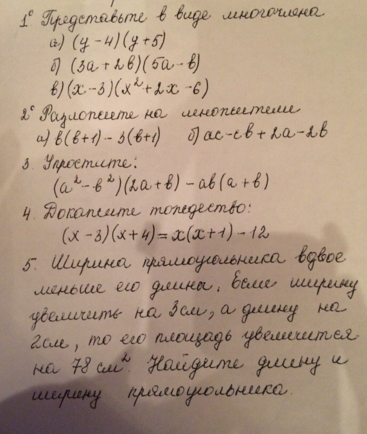 1° Представьте в виде многочлена
а) (у-4)(у+5)
б) (3а+2в)(5а-в)
в)(х-3)(х²+2х-6)
2° Разложите на множители
а) в(в+1)-3(в+1) б) ас-св+2а-2в
3. Упростите:
(а²-в²)(2а+в)-ав(а+в)
4. Докажите тождество:
(х-3)(х+4)=х(х+1)-12
5. Ширина прямоугольника вдвое
меньше его длины. Если ширину
увеличить на 3см, а длину на
2см, то его площадь увеличится
на 78 см². Найдите длину и
ширину прямоугольника.